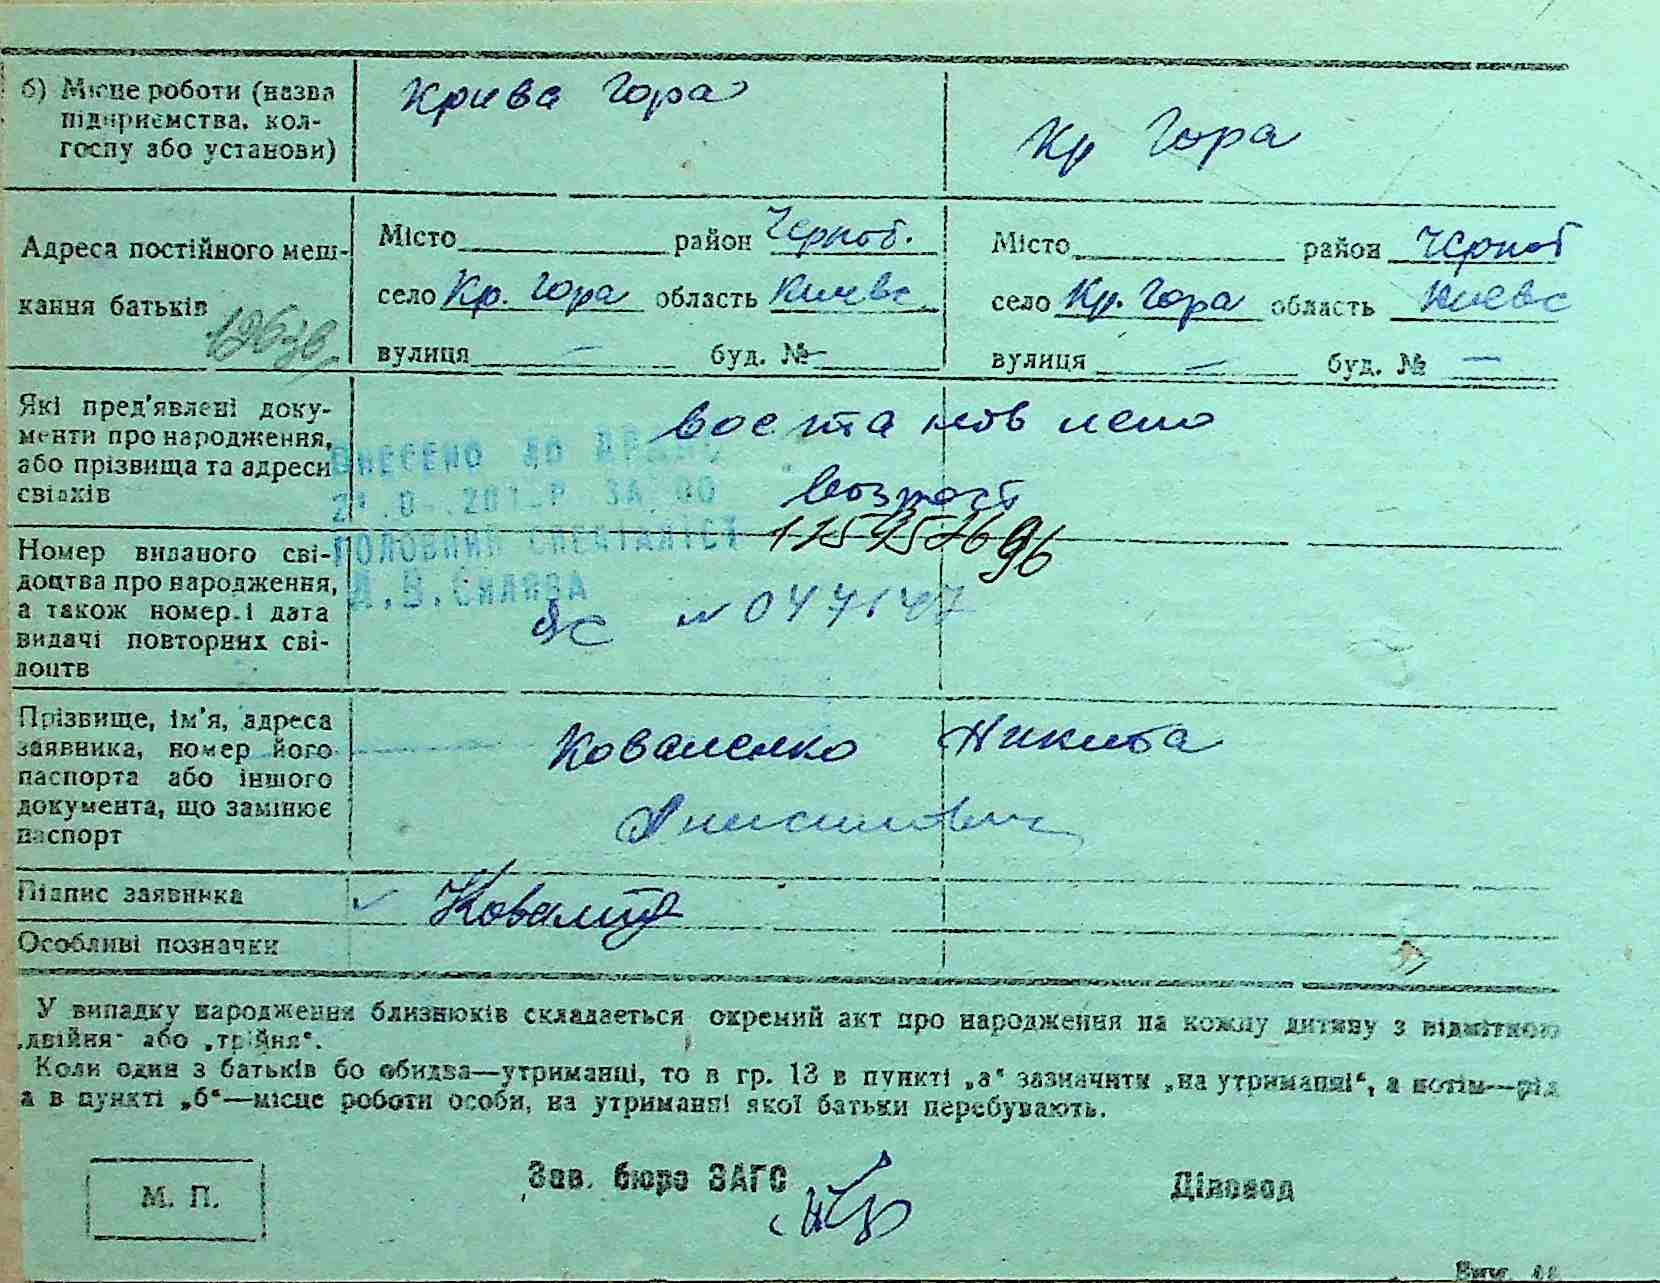 б) Місце роботи (назва
підприємства, кол-
госпу або установи)
Крива Гора
Кр Гора
Адреса постійного меш-
кання батьків
Місто район Черноб.
село Кр. Гора область Киевс
вулиця — буд. № —
Місто район Черноб
село Кр. Гора область Киевс
вулиця — буд. № —
Які пред'явлені доку-
менти про народження,
або прізвища та адреси
свідків
востановлено
возраст
ВНЕСЕНО ДО
ГОЛОВНИЙ СПЕЦІАЛІСТ
Номер виданого сві-
доцтва про народження,
а також номер і дата
видачі повторних сві-
доцтв
№ 047147
Прізвище, ім'я, адреса
заявника, номер його
паспорта або іншого
документа, що замінює
паспорт
Коваленко Никита
Анисимович
Підпис заявника
Особливі позначки
У випадку народження близнюків складається окремий акт про народження на кожну дитину з відміткою
„двійня“ або „трійня“.
Коли один з батьків бо обидва—утриманці, то в гр. 13 в пункті „а“ зазначити „на утриманні“, а потім—рід
а в пункті „б“—місце роботи особи, на утриманні якої батьки перебувають.
М. П.
Зав. бюро ЗАГС
Діловод